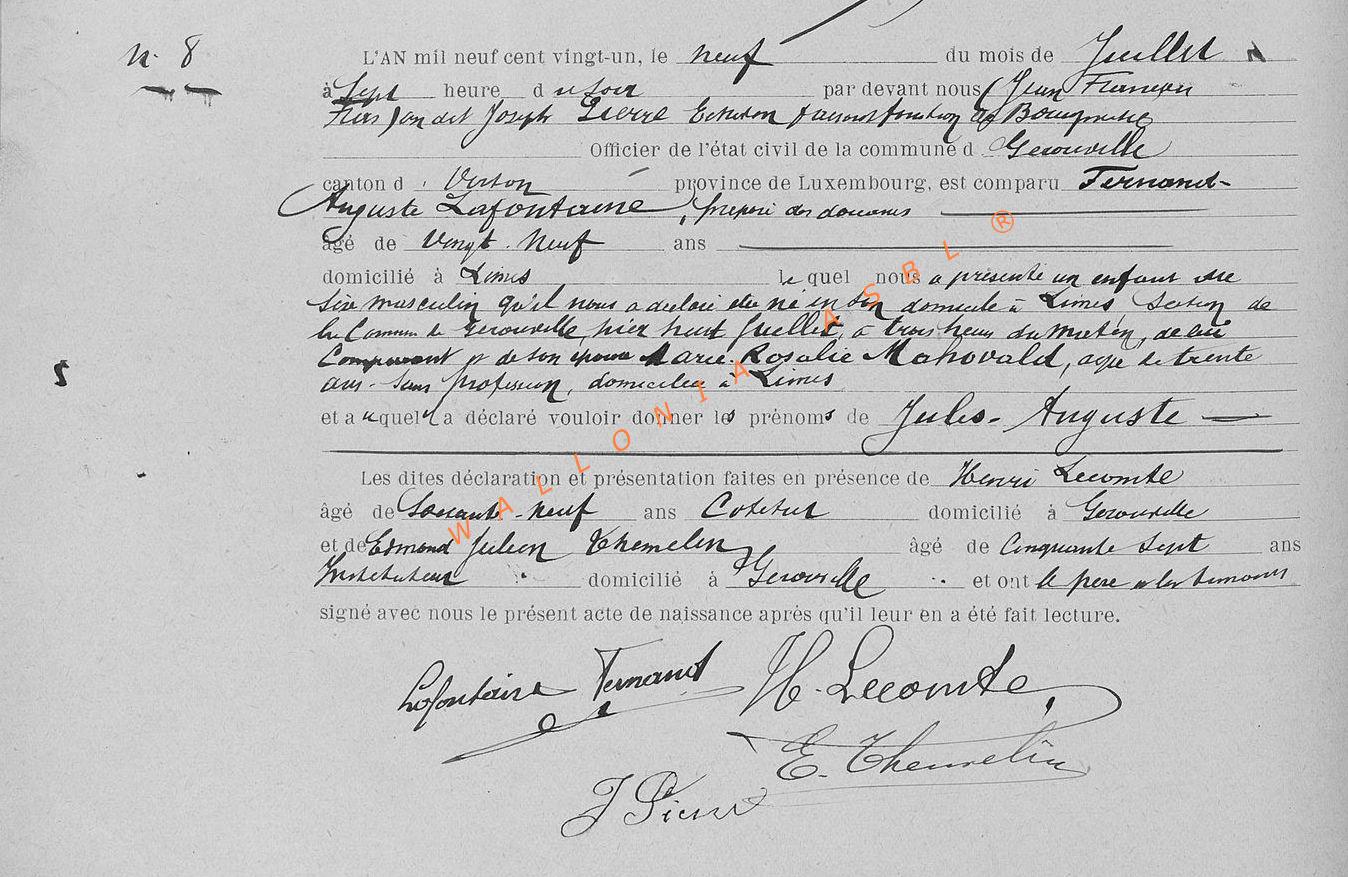 n. 8
L'AN mil neuf cent vingt-un, le neuf du mois de Juillet
à Sept heure du soir par devant nous (Jean François
dit Joseph Pierre Echevin faisant fonction de Bourgmestre
Officier de l'état civil de la commune d Gerouville
canton d Virton province de Luxembourg, est comparu Fernand-
Auguste Lafontaine, préposé des douanes
âgé de Vingt-Neuf ans
domicilié à Limes lequel nous a présenté un enfant du
sexe masculin qu'il nous a déclaré être né en son domicile à Limes, Section de
la Commune de Gerouville, hier huit Juillet, à trois heures du matin, de lui
Comparant et de son épouse Marie-Rosalie Mahovald, agée de trente
ans, sans profession, domiciliée à Limes
et auquel il a déclaré vouloir donner les prénoms de Jules-Auguste
Les dites déclaration et présentation faites en présence de Henri Lecomte
âgé de Soixante-neuf ans domicilié à Gerouville
et de Edmond Julien Themelin âgé de Cinquante Sept ans
Instituteur domicilié à Gerouville et ont le père et les témoins
signé avec nous le présent acte de naissance après qu'il leur en a été fait lecture.
Lafontaine Fernand H. Lecomte
E. Themelin
J Pierre
WALLONIA ASBL ®